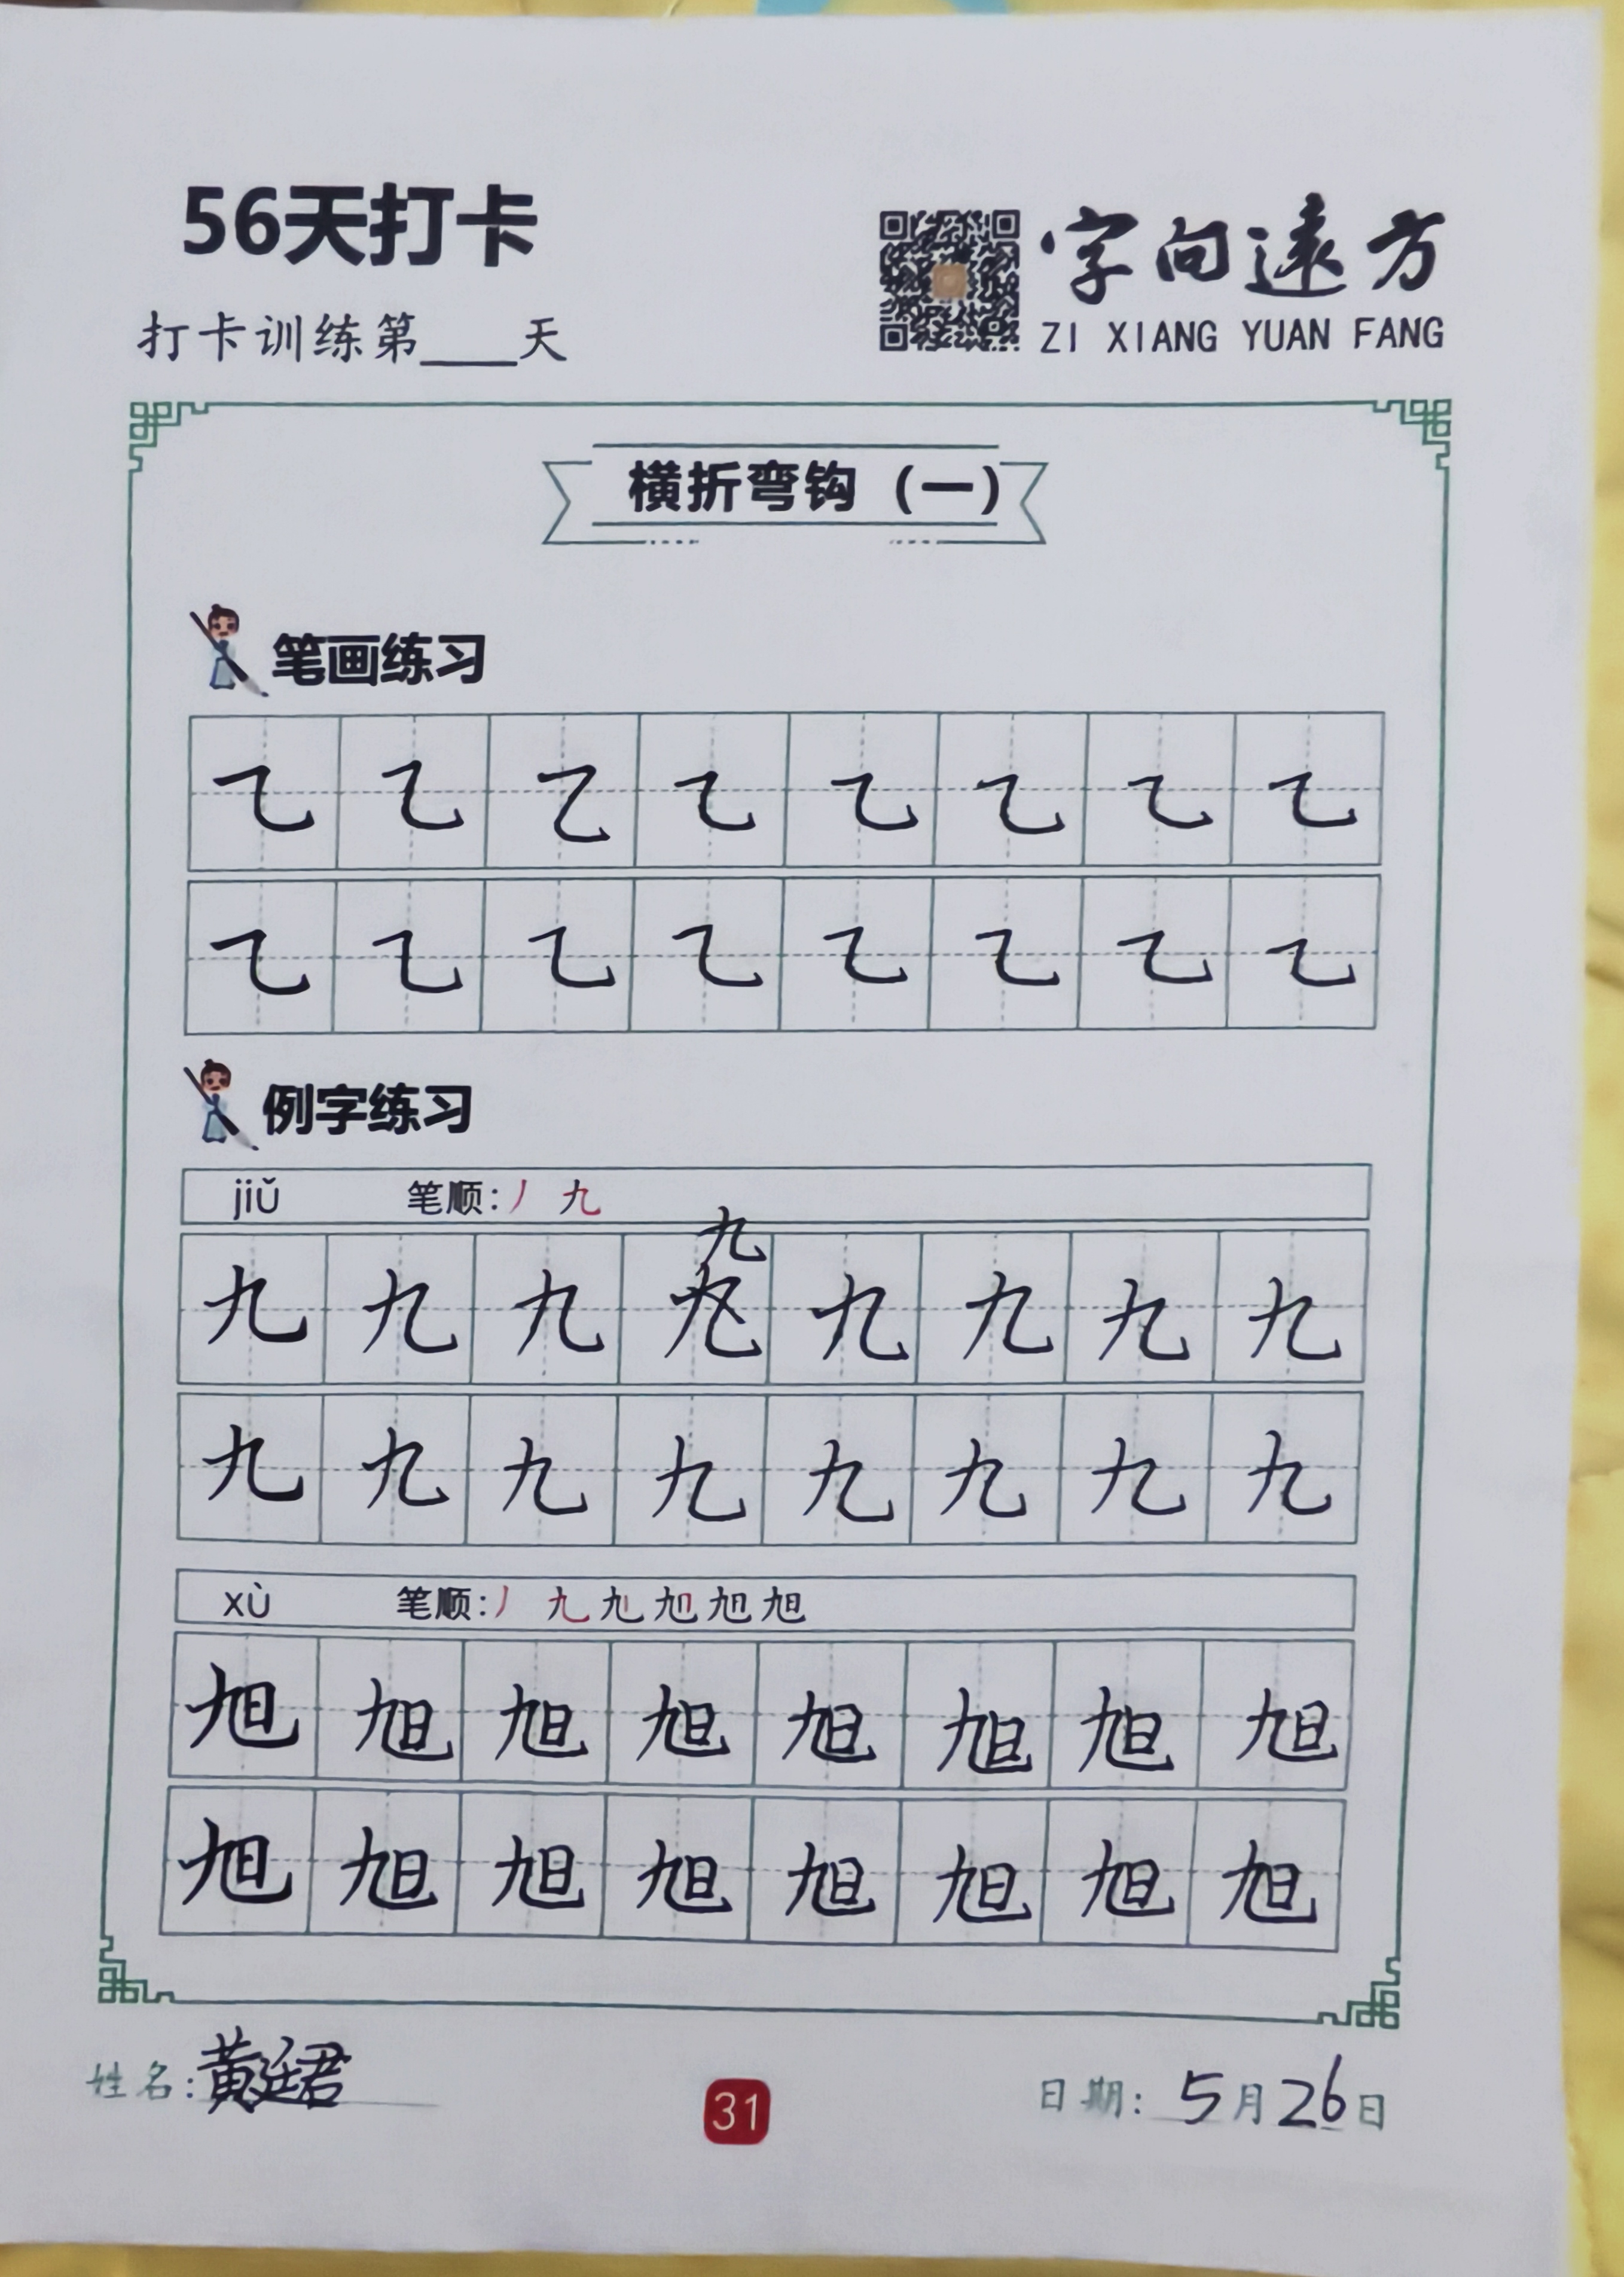 56天打卡
字向遠方
打卡训练第____天
ZI XIANG YUAN FANG
横折弯钩（一）
笔画练习
㇈ ㇈ ㇈ ㇈ ㇈ ㇈ ㇈ ㇈
㇈ ㇈ ㇈ ㇈ ㇈ ㇈ ㇈ ㇈
例字练习
jiǔ 笔顺：丿 九
九
九 九 九 九 九 九 九
九 九 九 九 九 九 九 九
xù 笔顺：丿 九 旭 旭
旭 旭 旭 旭 旭 旭 旭 旭
旭 旭 旭 旭 旭 旭 旭 旭
姓名：黄廷君
31
日期：5月26日